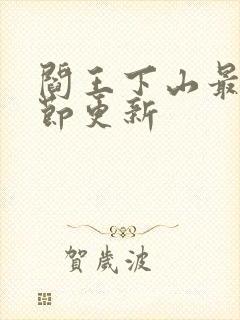 閻王下山最
節更新
賀歲波